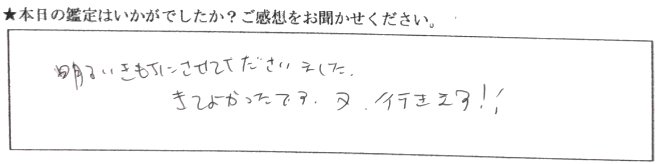 ★本日の鑑定はいかがでしたか？ご感想をお聞かせください。
明るいきもちにさせてくださいました。
きてよかったです。又、行きます!!